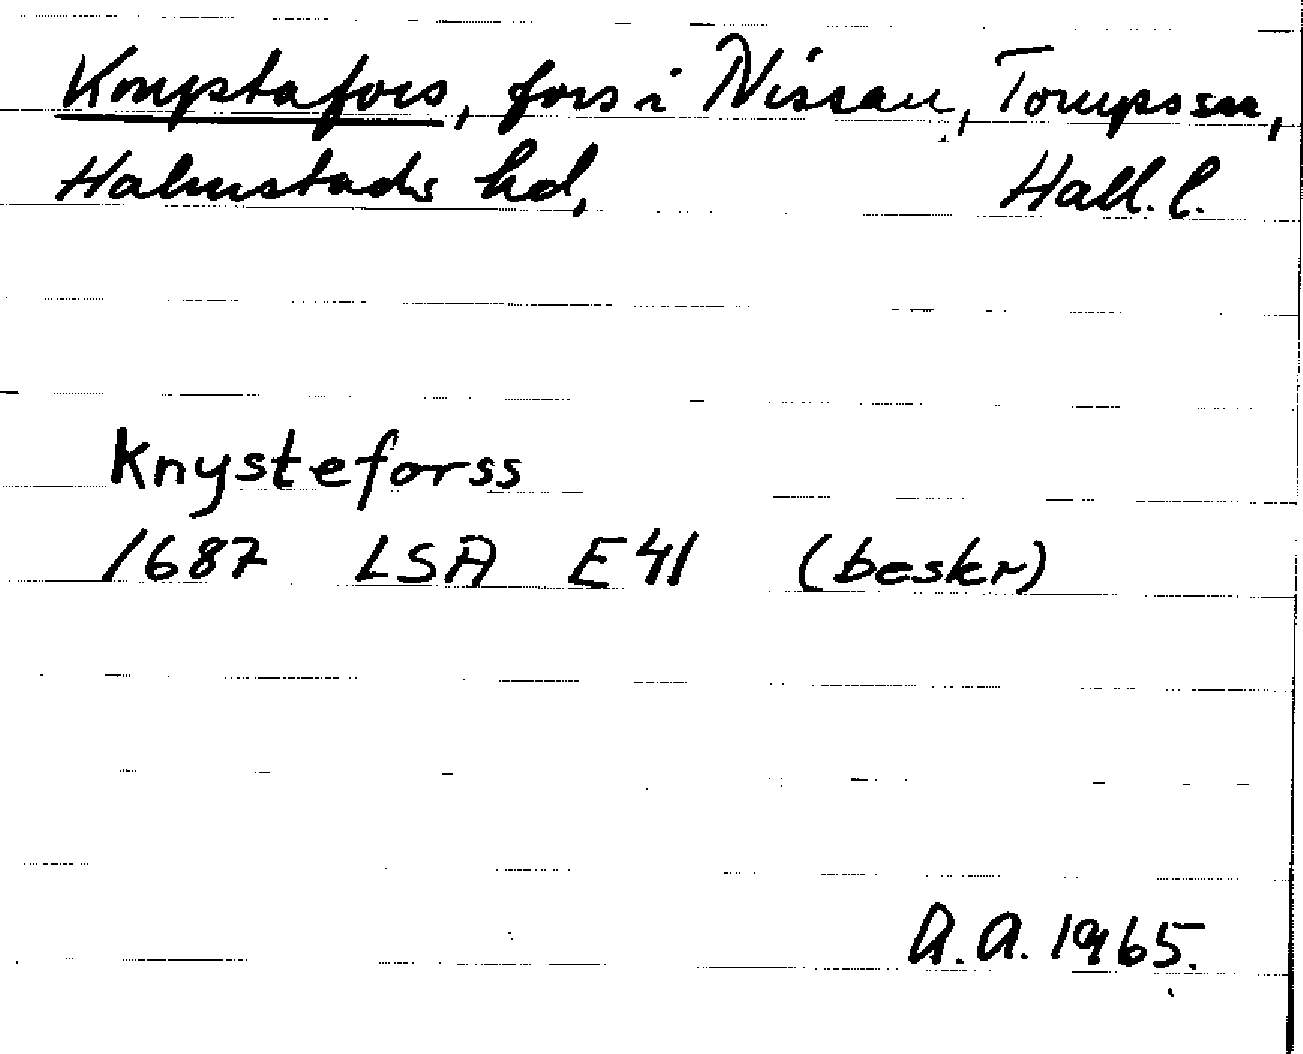 Knystafors, fors i Nissan, Torups sn,
Halmstads hd, Hall. l.
Knysteforss
1687 LSA E41 (beskr)
A.A. 1965.